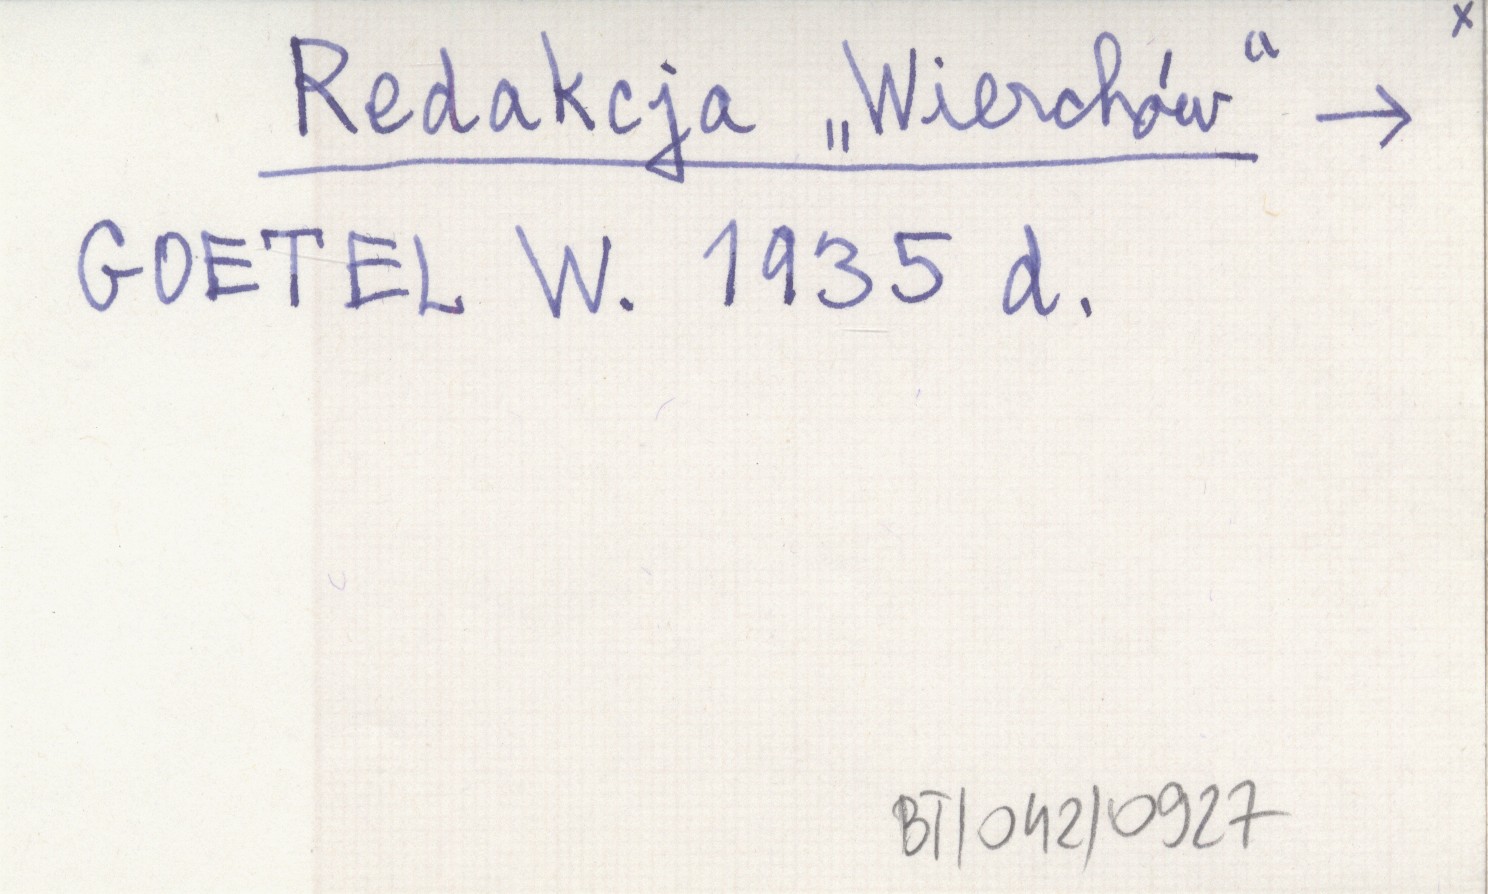 x
Redakcja „Wierchów“ →
GOETEL W. 1935 d.
BT/042/0927